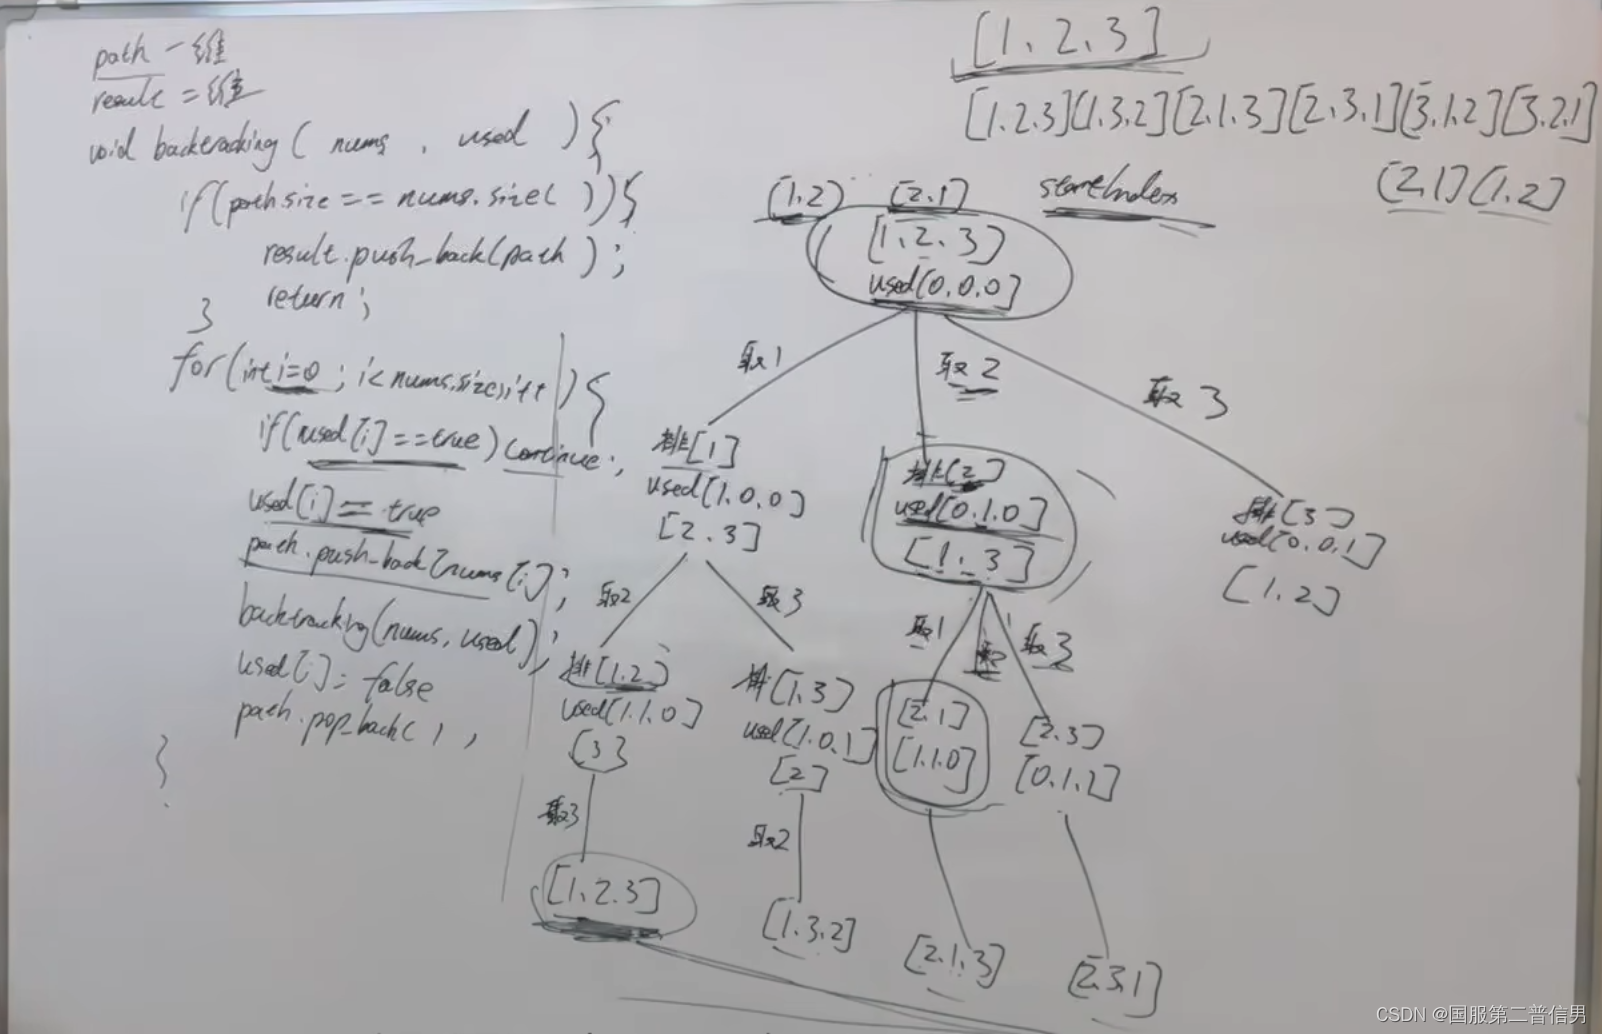 path 一维
result 二维
void backtracking( nums , used ){
if(path.size == nums.size( )){
result.push_back(path );
return;
}
for(int i=0 ; i<nums.size);i++ ){
if(used[i]==true) continue;
used[i]= true
path.push_back[nums[i];
backtracking(nums, used);
used[i]= false
path.pop_back( ) ,
}
[1、2、3]
[1.2.3](1.3.2][2.1.3][2.3.1][3.1.2][3.2.1]
(1.2) [2.1) startIndex (2.1](1.2]
[1.2.3)
used(0.0.0]
取1 取2 取3
排[1]
used[1.0.0]
[2.3]
排[2]
used[0.1.0]
[1.3]
排[3]
used[0.0.1]
[1.2]
取2 取3 取1 取3
排[1.2)
used[1.1.0)
[3]
排[1.3)
used[1.0.1]
[2]
[2.1)
[1.1.0]
[2.3)
取3 取2
[1.2.3]
[1.3.2]
[2.1.3]
[2.3.1]
CSDN @国服第二普信男